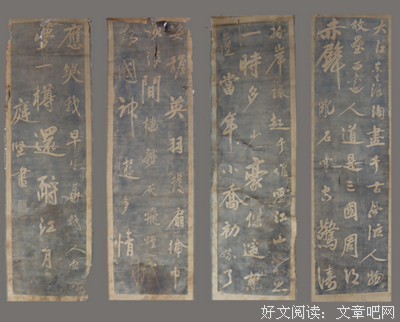 大江東去浪淘盡千古風流人物
故壘西邊人道是三國周郎
赤壁亂石穿空驚濤
拍岸捲起千堆雪江山如畫
一時多少豪傑遙想
當年小喬初嫁了
英發羽扇綸巾
間檣艣灰飛煙
故國神遊多情
應笑我早生華髮人生如
夢一樽還酹江月
庭堅書
好文阅读:文章吧网